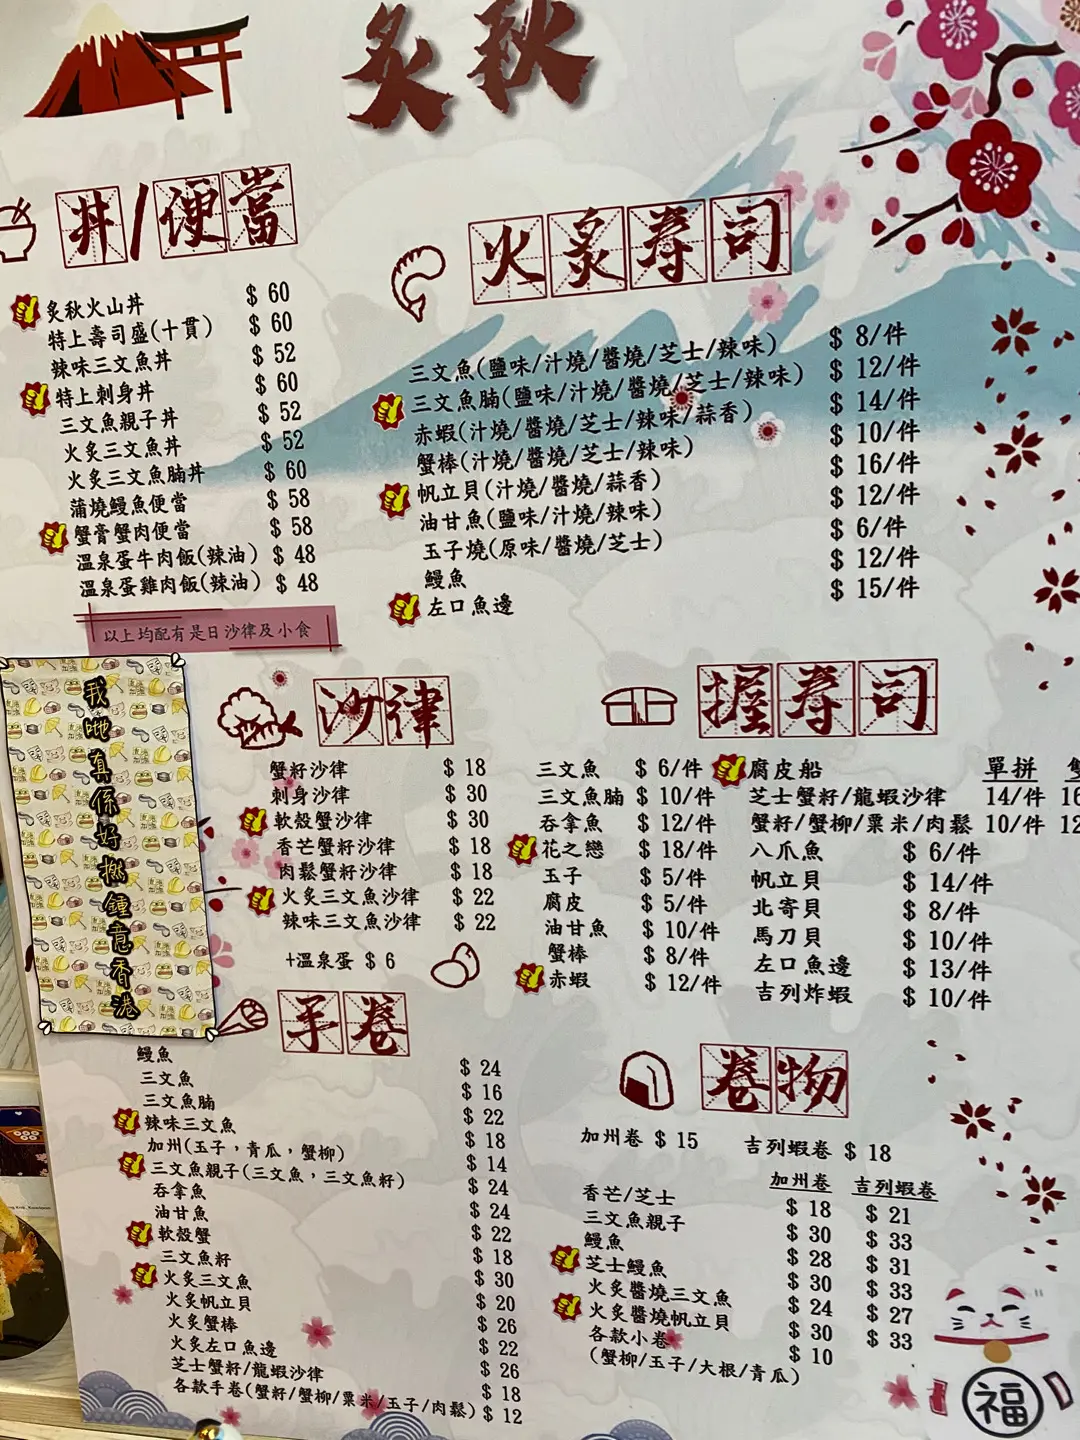 炙秋
丼/便當
炙秋火山丼 $ 60
特上壽司盛(十貫) $ 60
辣味三文魚丼 $ 52
特上刺身丼 $ 60
三文魚親子丼 $ 52
火炙三文魚丼 $ 52
火炙三文魚腩丼 $ 60
蒲燒鰻魚便當 $ 58
蟹膏蟹肉便當 $ 58
溫泉蛋牛肉飯(辣油) $ 48
溫泉蛋雞肉飯(辣油) $ 48
以上均配有是日沙律及小食
火炙寿司
三文魚(鹽味/汁燒/醬燒/芝士/辣味) $ 8/件
三文魚腩(鹽味/汁燒/醬燒/芝士/辣味) $ 12/件
赤蝦(汁燒/醬燒/芝士/辣味/蒜香) $ 14/件
蟹棒(汁燒/醬燒/芝士/辣味) $ 10/件
帆立貝(汁燒/醬燒/蒜香) $ 16/件
油甘魚(鹽味/汁燒/辣味) $ 12/件
玉子燒(原味/醬燒/芝士) $ 6/件
鰻魚 $ 12/件
左口魚邊 $ 15/件
我哋真係好撚鍾意香港
沙律
蟹籽沙律 $ 18
刺身沙律 $ 30
軟殼蟹沙律 $ 30
香芒蟹籽沙律 $ 18
肉鬆蟹籽沙律 $ 18
火炙三文魚沙律 $ 22
辣味三文魚沙律 $ 22
+溫泉蛋 $ 6
握寿司
三文魚 $ 6/件
三文魚腩 $ 10/件
吞拿魚 $ 12/件
花之戀 $ 18/件
玉子 $ 5/件
腐皮 $ 5/件
油甘魚 $ 10/件
蟹棒 $ 8/件
赤蝦 $ 12/件
腐皮船 單拼
芝士蟹籽/龍蝦沙律 14/件 16
蟹籽/蟹柳/粟米/肉鬆 10/件 12
八爪魚 $ 6/件
帆立貝 $ 14/件
北寄貝 $ 8/件
馬刀貝 $ 10/件
左口魚邊 $ 13/件
吉列炸蝦 $ 10/件
手卷
鰻魚 $ 24
三文魚 $ 16
三文魚腩 $ 22
辣味三文魚 $ 18
加州(玉子，青瓜，蟹柳) $ 14
三文魚親子(三文魚，三文魚籽) $ 24
吞拿魚 $ 24
油甘魚 $ 22
軟殼蟹 $ 18
三文魚籽 $ 30
火炙三文魚 $ 20
火炙帆立貝 $ 26
火炙蟹棒 $ 22
火炙左口魚邊 $ 26
芝士蟹籽/龍蝦沙律 $ 18
各款手卷(蟹籽/蟹柳/粟米/玉子/肉鬆) $ 12
卷物
加州卷 $ 15 吉列蝦卷 $ 18
加州卷 吉列蝦卷
香芒/芝士 $ 18 $ 21
三文魚親子 $ 30 $ 33
鰻魚 $ 28 $ 31
芝士鰻魚 $ 30 $ 33
火炙醬燒三文魚 $ 24 $ 27
火炙醬燒帆立貝 $ 30 $ 33
各款小卷 $ 10
(蟹柳/玉子/大根/青瓜)
福